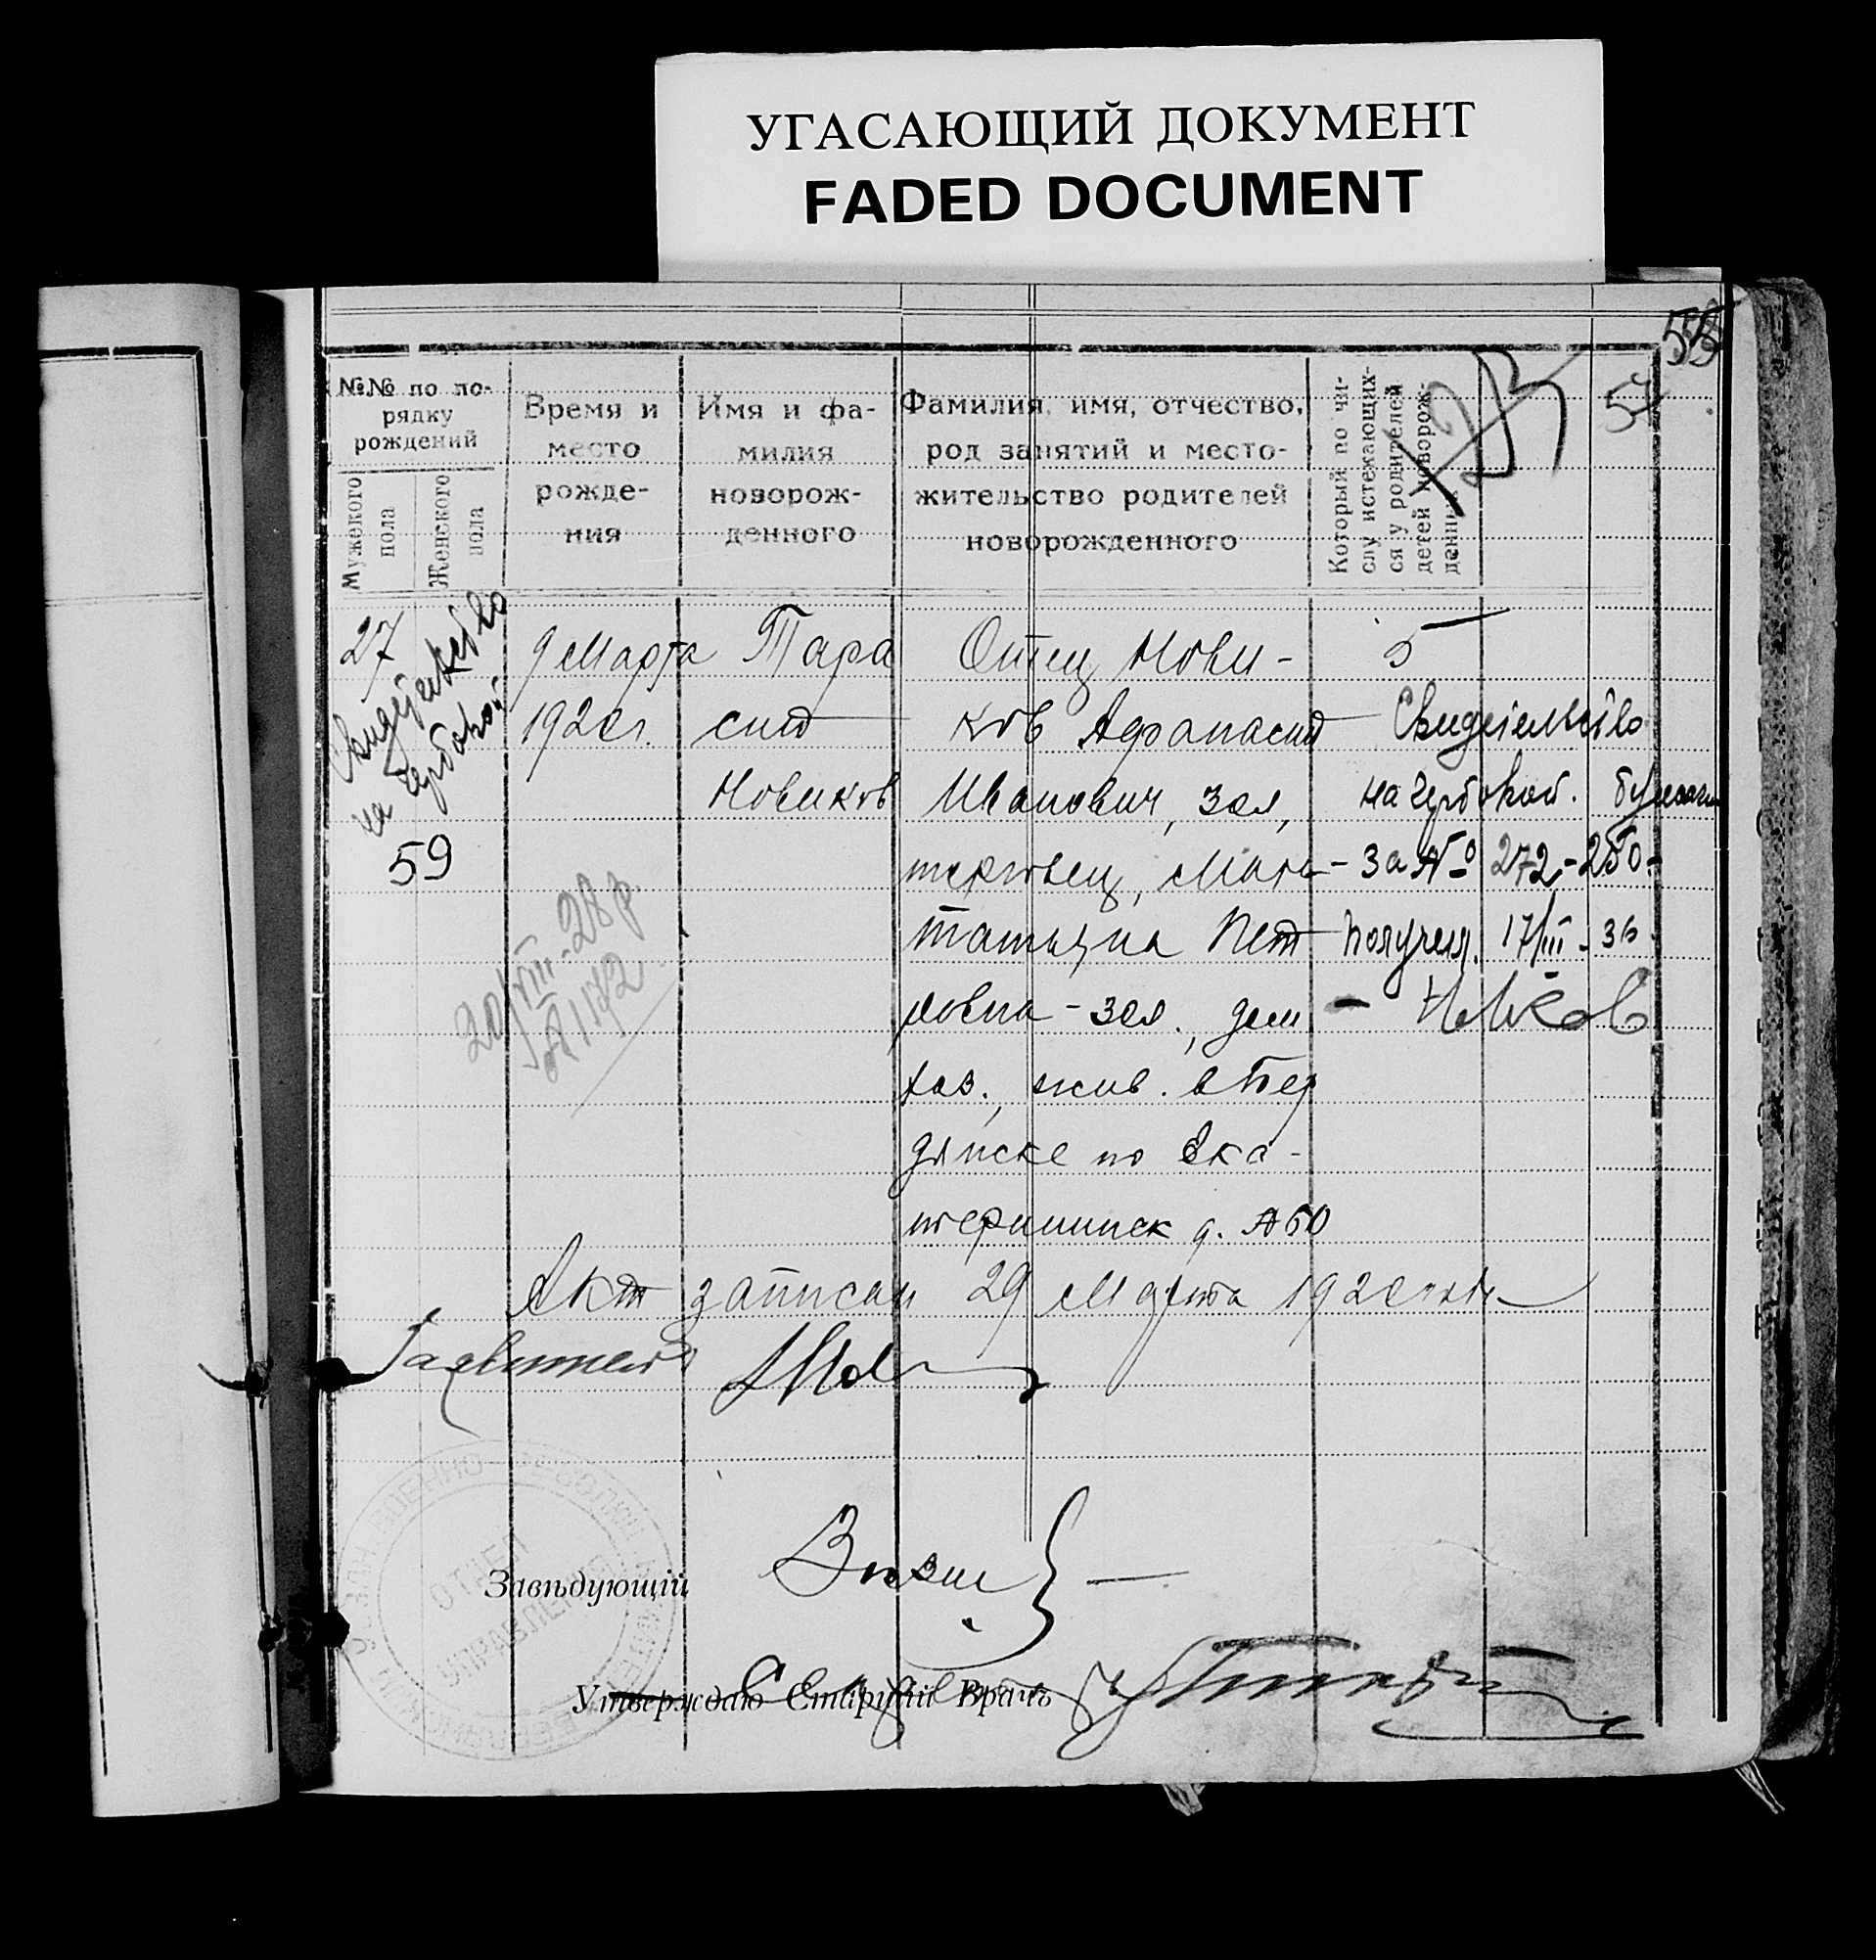 УГАСАЮЩИЙ ДОКУМЕНТ
FADED DOCUMENT
57
№№ по по-
рядку
рождений
Мужского
пола
Женского
пола
Время и
место
рожде-
ния
Имя и фа-
милия
новорож-
денного
Фамилия, имя, отчество,
род занятий и место-
жительство родителей
новорожденного
Который по чи-
слу истекающих-
ся у родителей
детей новорож-
денн
27
Свидетельство
на гербовой
59
9 Марта
192 г.
Тара
сий
Новиков
Отец Нови-
ков Афанасий
Иванович, зел,
торговец, Мать
Татьяна Пет
ровна - зел., дом
хаз., жив. в Бер
дянске по Ека-
терининск д. № 60
5
Свидетельство
на гербовой. бумаги
за № 272-250-
Получил. 17/III - 36
20/VIII-28 р.
№ 1172
Акт записан 29 Марта 192
Заявитель
ОТДЕЛ
УПРАВЛЕНИЯ
Завѣдующій
Утверждаю Старшій Врачъ